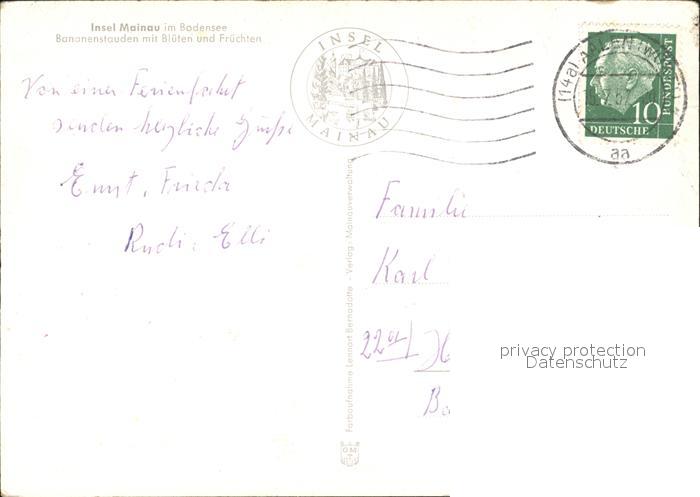 Insel Mainau im Bodensee
Bananenstauden mit Blüten und Früchten
Von einer Ferienfahrt
senden herzliche Grüße
Ernst, Frieda
Rudi, Elli
INSEL
MAINAU
Farbaufnahme Lennart Bernadotte - Verlag: Mainauverwaltung
GM
(14a) AALEN (WÜ
aa
10
DEUTSCHE
BUNDESPOST
Familie
Karl
22a
privacy protection
Datenschutz